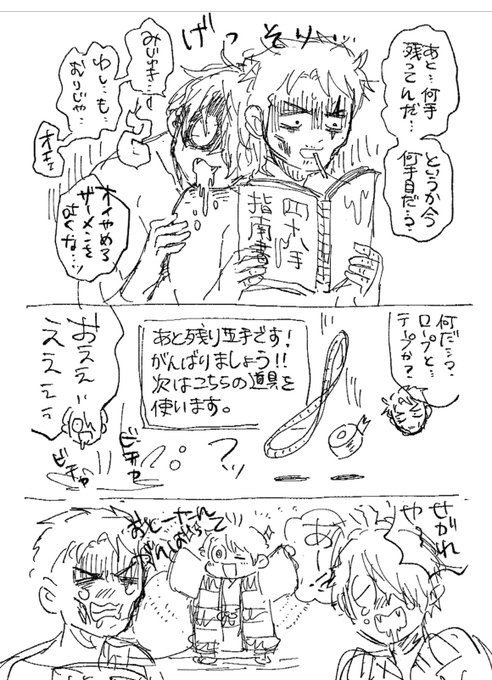 げっそり
あと…何手
残ってんだ…
というか今
何手目だ…?
みじゅき…
わしも…
むりじゃ…
オエ…
オイやめろ
ザーメンを
吐くな…ッ
四十八手
指南書
何だ…?
ロープと…
テープか?
あと残り五手です!
がんばりましょう!!
次はこちらの道具を
使います。
おええ
ええええ
ビチャ
ビチャ
?
せがれ
や…
あー
おとーたん
がんばらって